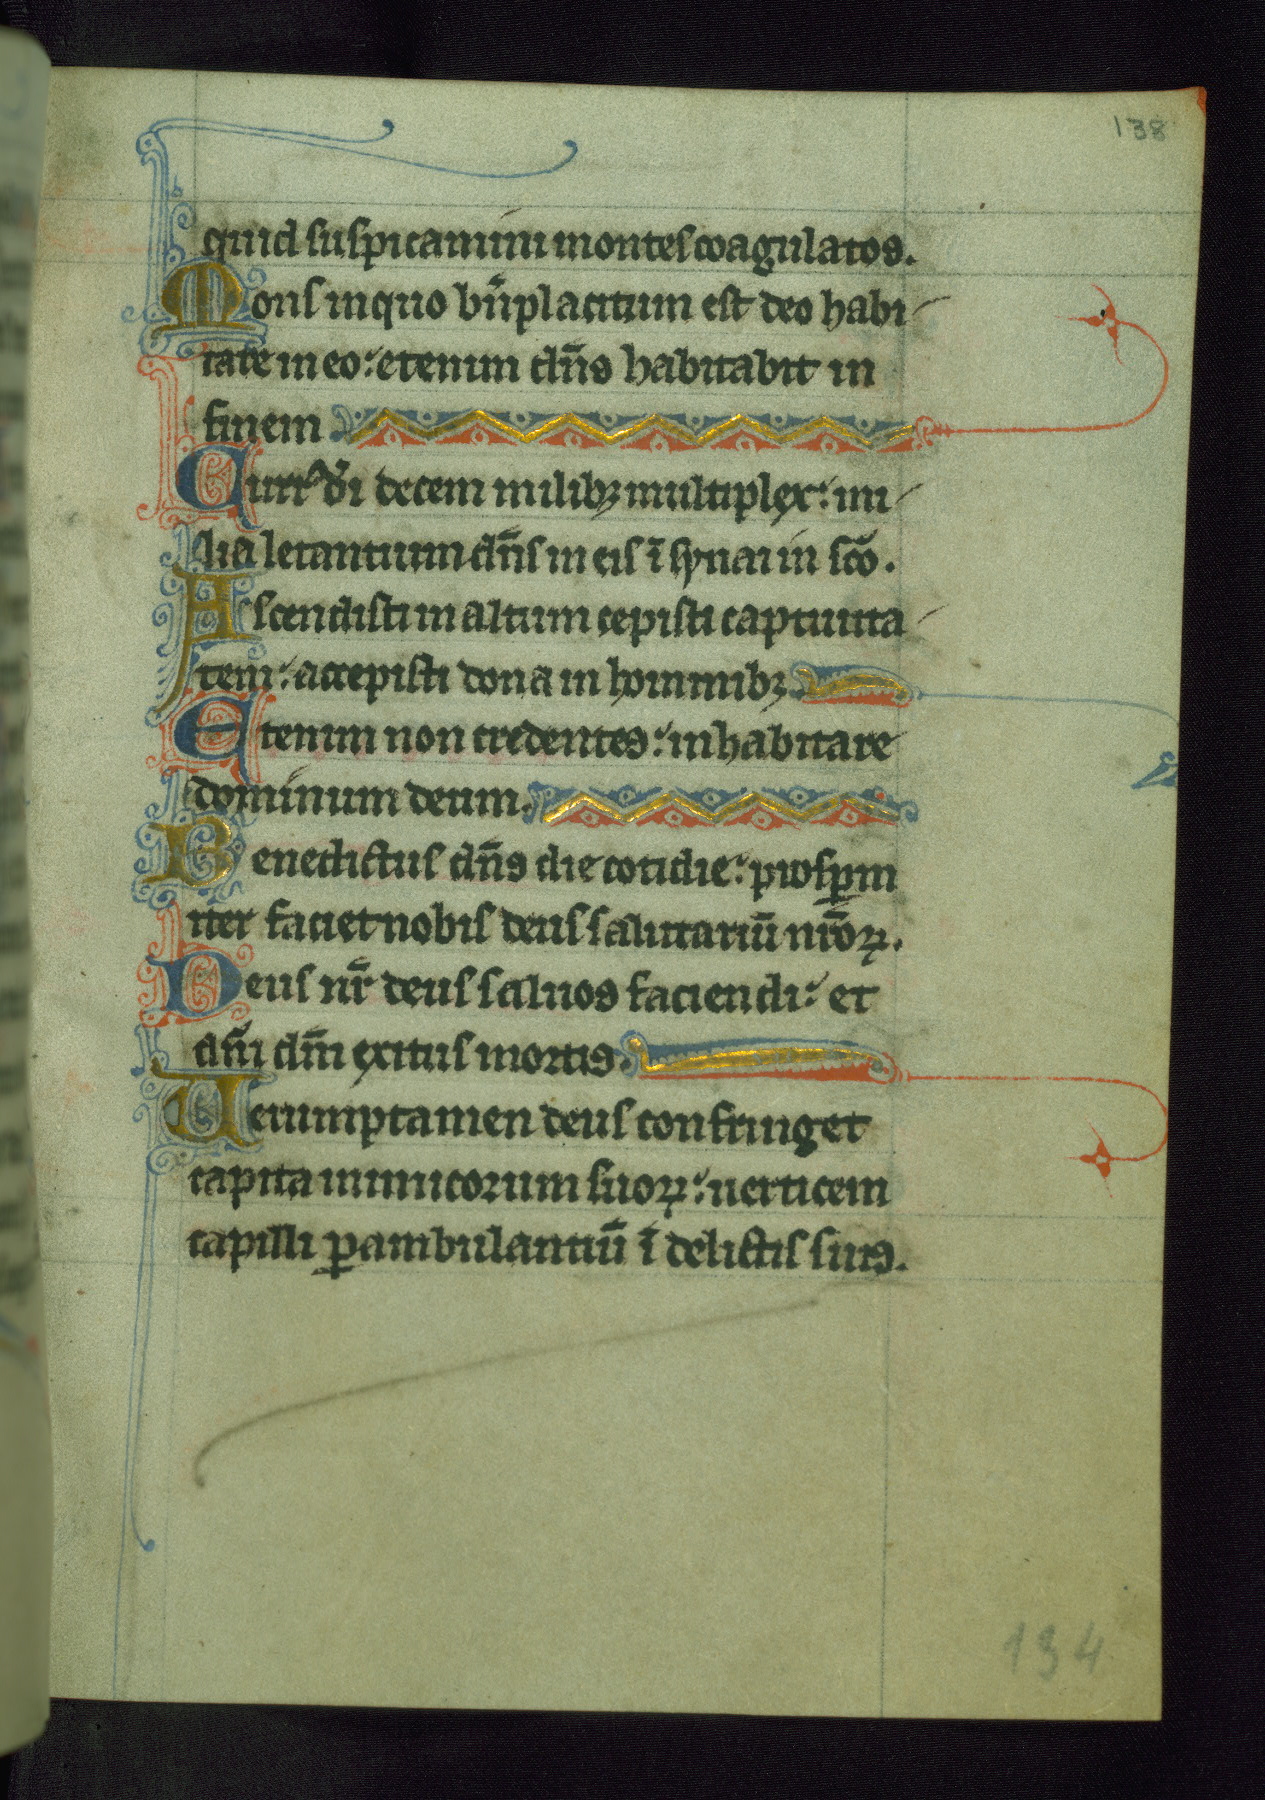 138
quid suspicamini montes coagulatos.
Mons in quo bn̄placitum est deo habi
tare in eo: etenim dn̄s habitabit in
finem
Curr᾽ d̄i decem milibꝫ multiplex: mi
lia letantium dn̄s in eis ī synai in sc̄o.
Ascendisti in altum cepisti captiuita
tem: accepisti dona in hominibꝫ
Etenim non credentes: inhabitare
dominum deum.
Benedictus dn̄s die cotidie: prosꝑm
iter faciet nobis deus salutariū nr̄oꝝ.
Deus nr̄ deus saluos faciendi: et
dn̄i dn̄i exitus mortis.
Uerumptamen deus confringet
capita inimicorum suoꝝ: uerticem
capilli ꝑambulantiū ī delictis suis.
134